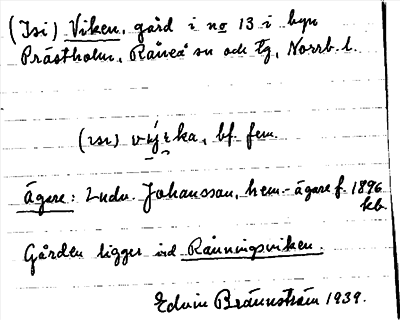 (Isi) Viken, gård i no 13 i byn
Prästholm, Råneå sn och tg, Norrb. l.
(ısı) vy̆rka, bf. fem.
Ägare: Ludv. Johansson, hem.-ägare f. 1896
kb.
Gården ligger vid Rånningsviken.
Edvin Brännström 1939.